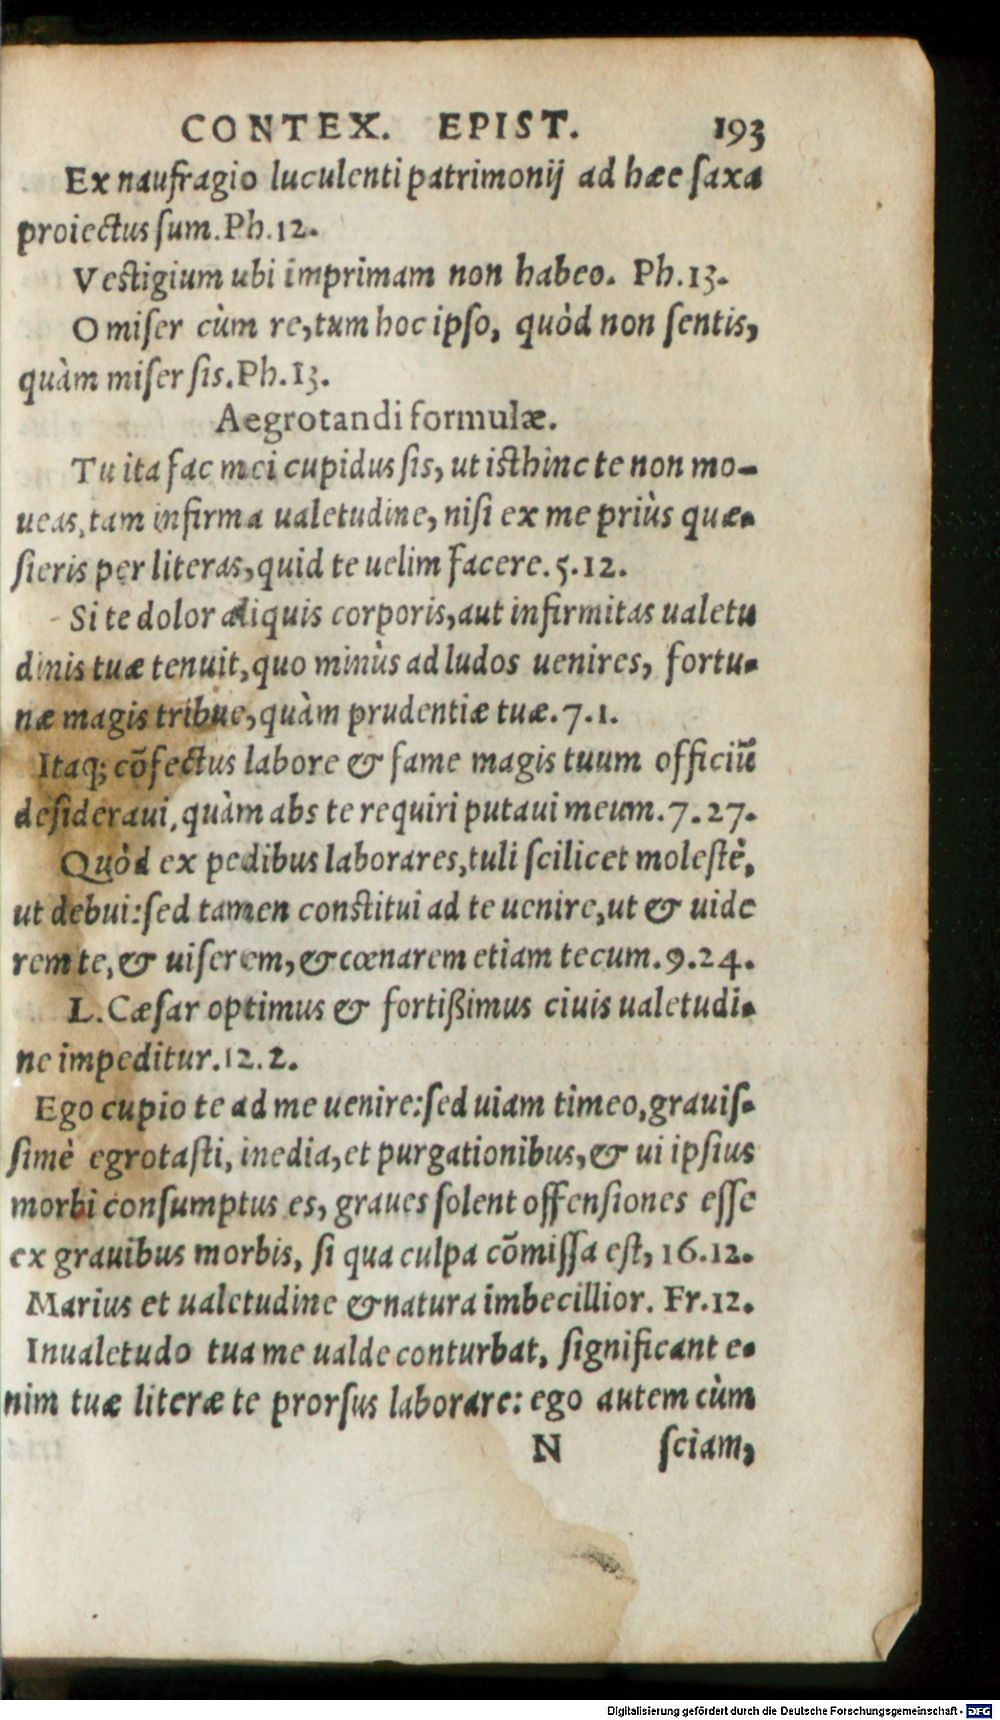 CONTEX. EPIST. 193
Ex naufragio luculenti patrimonij ad hæc ſaxa
proiectus ſum. Ph. 12.
Vestigium ubi imprimam non habeo. Ph. 13.
O miſer cùm re, tum hoc ipſo, quòd non ſentis,
quàm miſer ſis. Ph. 13.
Aegrotandi formulæ.
Tu ita fac mei cupidus ſis, ut isthinc te non mo-
ueas, tam infirma ualetudine, niſi ex me priùs quæ-
ſieris per literas, quid te uelim facere. 5. 12.
Si te dolor aliquis corporis, aut infirmitas ualetu
dinis tuæ tenuit, quo minùs ad ludos uenires, fortu-
næ magis tribue, quàm prudentiæ tuæ. 7. 1.
Itaq; cõfectus labore & fame magis tuum officiũ
deſideraui, quàm abs te requiri putaui meum. 7. 27.
Quòd ex pedibus laborares, tuli ſcilicet moleſtè,
ut debui: ſed tamen constitui ad te uenire, ut & uide
rem te, & uiſerem, & cœnarem etiam tecum. 9. 24.
L. Cæſar optimus & fortißimus ciuis ualetudi-
ne impeditur. 12. 2.
Ego cupio te ad me uenire: ſed uiam timeo, grauiſ-
ſimè egrotaſti, inedia, et purgationibus, & ui ipſius
morbi conſumptus es, graues ſolent offenſiones eſſe
ex grauibus morbis, ſi qua culpa cõmiſſa eſt, 16. 12.
Marius et ualetudine & natura imbecillior. Fr. 12.
Inualetudo tua me ualde conturbat, ſignificant e-
nim tuæ literæ te prorſus laborare: ego autem cùm
N ſciam,
Digitalisierung gefördert durch die Deutsche Forschungsgemeinschaft - DFG